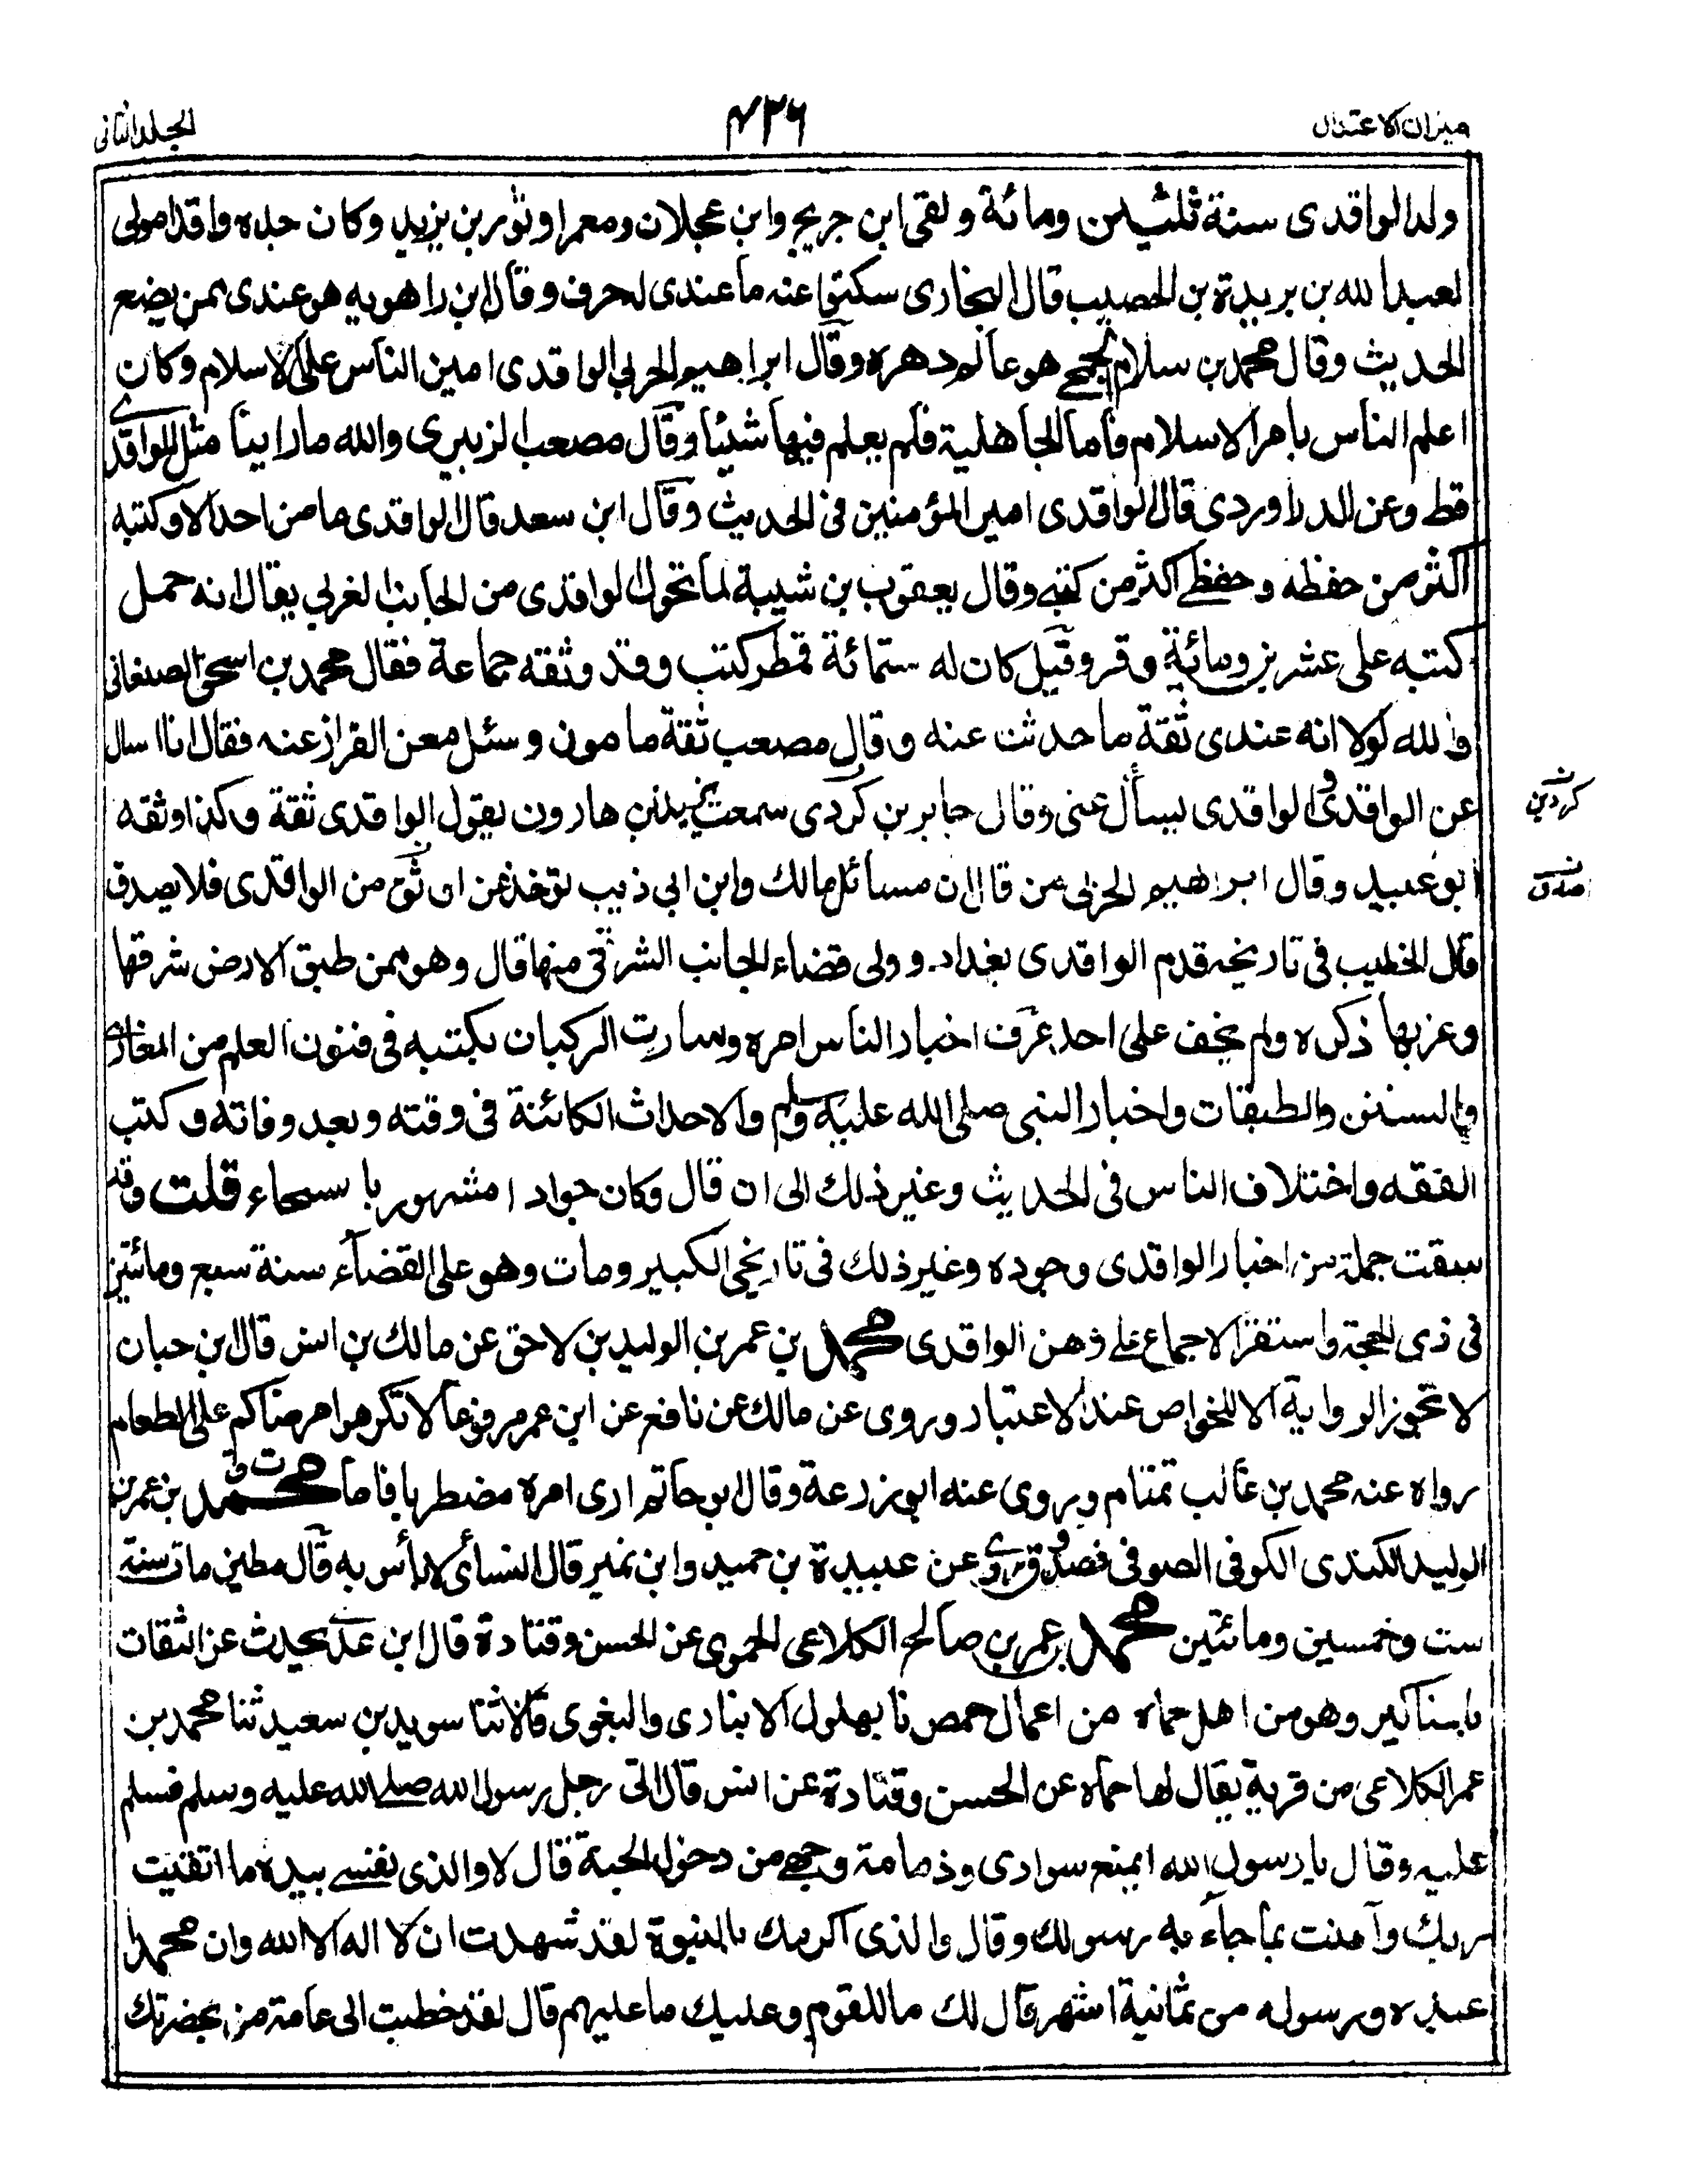 ميزان الاعتدال
٤٢٦
الجلد الثانى
ولد الواقدى سنة ثلثين ومائة ولقى ابن جريج وابن عجلان ومعمرا وثور بن يزيد وكان جده واقد امولى
لعبد الله بن بريدة بن الحصيب قال البخارى سكتوا عنه ما عندى له حرف وقال ابن راهويه هو عندى ممن يضع
الحديث وقال محمد بن سلام الجمحى هو عالم دهره وقال ابراهيم الحربى الواقدى امين الناس على الاسلام وكان
اعلم الناس بامر الاسلام فاما الجاهلية فلم يعلم فيها شيئا وقال مصعب الزبيرى والله ما راينا مثل الواقدى
قط وعن الدراوردى قال الواقدى امير المؤمنين فى الحديث وقال ابن سعد قال الواقدى ما من احد الا وكتبه
اكثر من حفظه وحفظى اكثر من كتبى وقال يعقوب بن شيبة لما تحول الواقدى من الجانب الغربى يقال انه حمل
كتبه على عشرين ومائة وقر وقيل كان له ستمائة قمطر كتب وقد وثقه جماعة فقال محمد بن اسحق الصنعانى
والله لولا انه عندى ثقة ما حدثت عنه وقال مصعب ثقة مامون وسئل معن القزاز عنه فقال انا اسال
عن الواقدى والواقدى يسأل عنى وقال جابر بن كردى سمعت يزيد بن هارون يقول الواقدى ثقة وكذا وثقه
كردين
ابو عبيد وقال ابراهيم الحربى من قال ان مسائل مالك وابن ابى ذيب تؤخذ عن اوثق من الواقدى فلا يصدق
قال الخطيب فى تاريخه قدم الواقدى بغداد وولى قضاء الجانب الشرقى منها قال وهو ممن طبق الارض شرقها
وغربها ذكره ولم يخف على احد عرف اخبار الناس امره وسارت الركبان بكتبه فى فنون العلم من المغازى
والسنن والطبقات واخبار النبى صلى الله عليه وسلم والاحداث الكائنة فى وقته وبعد وفاته وكتب
الفقه واختلاف الناس فى الحديث وغير ذلك الى ان قال وكان جوادا مشهور با سخاء قلت وقد
سقت جملة من اخبار الواقدى وجوده وغير ذلك فى تاريخى الكبير ومات وهو على القضاء سنة سبع ومائتين
فى ذى الحجة واستقر الاجماع على وهن الواقدى محمد بن عمر بن الوليد بن لاحق عن مالك بن انس قال ابن حبان
لا تجوز الرواية الا للخواص عند الاعتبار وروى عن مالك عن نافع عن ابن عمر مرفوعا لا تكرهوا مرضاكم على الطعام
رواه عنه محمد بن غالب تمتام وروى عنه ابو زرعة وقال ابو حاتم ارى امره مضطربا فاما محمد بن عمر بن
الوليد الكندى الكوفى الصوفى فصدوق روى عن عبيدة بن حميد وابن نمير قال النسأى لا بأس به قال مطين مات سنة
ست وخمسين ومائتين محمد بن عمر بن صالح الكلاعى الحموى عن الحسن وقتادة قال ابن عدى يحدث عن الثقات
بالمناكير وهو من اهل حماه من اعمال حمص نا بهلول الانبارى والبغوى قالا ثنا سويد بن سعيد ثنا محمد بن
عمر الكلاعى من قرية يقال لها حماه عن الحسن وقتادة عن انس قال اتى رجل رسول الله صلى الله عليه وسلم فسلم
عليه وقال يا رسول الله ايمنع سوادى وذمامة وجهى من دخول الجنة قال لا والذى نفسى بيده ما اتقيت
ربك وآمنت بما جاء به رسولك وقال والذى اكرمك بالنبوة لقد شهدت ان لا اله الا الله وان محمدا
عبده ورسوله من ثمانية اشهر قال لك ما للقوم وعليك ما عليهم قال لقد خطبت الى عامة من بحضرتك